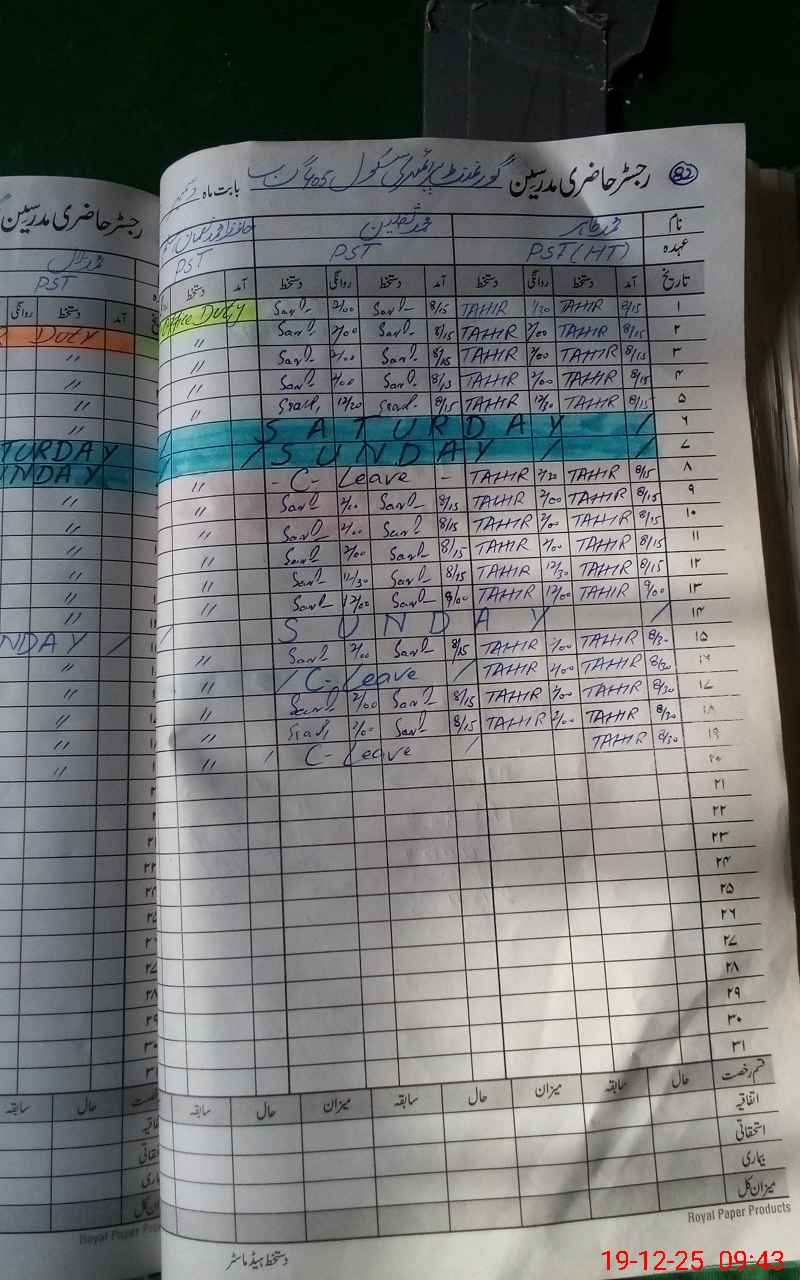 82 رجسٹر حاضری مدرسین گورنمنٹ پرائمری سکول 405 گ ب بابت ماہ دسمبر
نام محمد طاہر محمد
عہدہ PST(HT) PST PST
تاریخ آمد دستخط روانگی دستخط آمد دستخط روانگی دستخط آمد دستخط
۱ 8/15 TAHIR 1/30 TAHIR 8/15 2/00 Office Duty
۲ 8/15 TAHIR 2/00 TAHIR 8/15 2/00 "
۳ 8/15 TAHIR 2/00 TAHIR 8/15 2/00 "
۴ 8/15 TAHIR 2/00 TAHIR 8/15 2/00 "
۵ 8/15 TAHIR 12/30 TAHIR 8/15 12/20 "
۶ / SATURDAY
۷ / / SUNDAY /
۸ 8/15 TAHIR 1/30 TAHIR - C- Leave - "
۹ 8/15 TAHIR 2/00 TAHIR 8/15 2/00 "
۱۰ 8/15 TAHIR 2/00 TAHIR 8/15 2/00 "
۱۱ 8/15 TAHIR 2/00 TAHIR 8/15 2/00 "
۱۲ 8/15 TAHIR 12/30 TAHIR 8/15 11/30 "
۱۳ 9/00 TAHIR 12/00 TAHIR 9/00 12/00 "
۱۴ / SUNDAY /
۱۵ 8/30 TAHIR 2/00 TAHIR 8/15 2/00 "
۱۶ 8/30 TAHIR 2/00 TAHIR / C- Leave / "
۱۷ 8/30 TAHIR 2/00 TAHIR 8/15 2/00 "
۱۸ 8/30 TAHIR 2/00 TAHIR 8/15 2/00 "
۱۹ 8/30 TAHIR / C- Leave / "
۲۰
۲۱
۲۲
۲۳
۲۴
۲۵
۲۶
۲۷
۲۸
۲۹
۳۰
۳۱
قسم رخصت حال سابقہ میزان حال سابقہ میزان حال سابقہ
اتفاقیہ
استحقاقی
بیماری
میزان کل
Royal Paper Products
دستخط ہیڈ ماسٹر
رجسٹر حاضری مدرسین
PST
آمد دستخط روانگی
DUTY
TURDAY
NDAY
NDAY /
حال سابقہ
Royal Paper
19-12-25 09:43